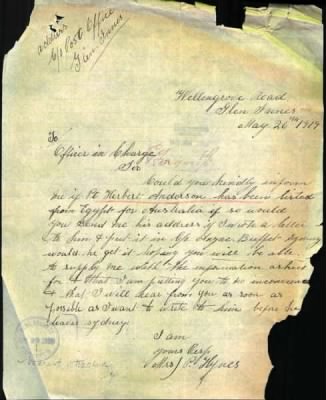 address
C/o Post Office
Glen Innes
Wellingrove Road
Glen Innes
May 26th 1919
To
Officer in Charge
Sir
Could you kindly inform
me if Pt Herbert Anderson has been
from Egypt for Australia if so would
you send me his address if I wrote a letter
to him & put it in C/o Anzac Buffet Sydney
would he get it hoping you will be able
to supply me with the information asked
for & what I am putting you to no inconvenience
& that I will hear from you as soon as
possible as I want to write to him before he
leaves Sydney
I am
yours Resp
Mrs J P Hynes